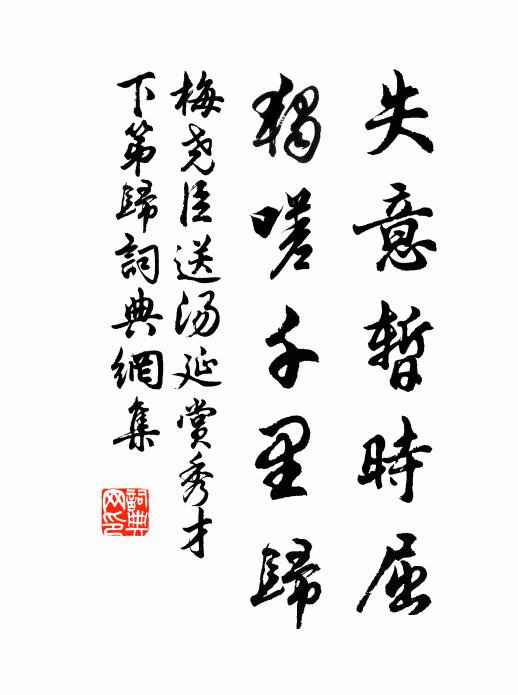 失意暫時屈
獨嗟千里歸
梅尧臣送汤延賞秀才
下第歸詞典網集
詞典网印